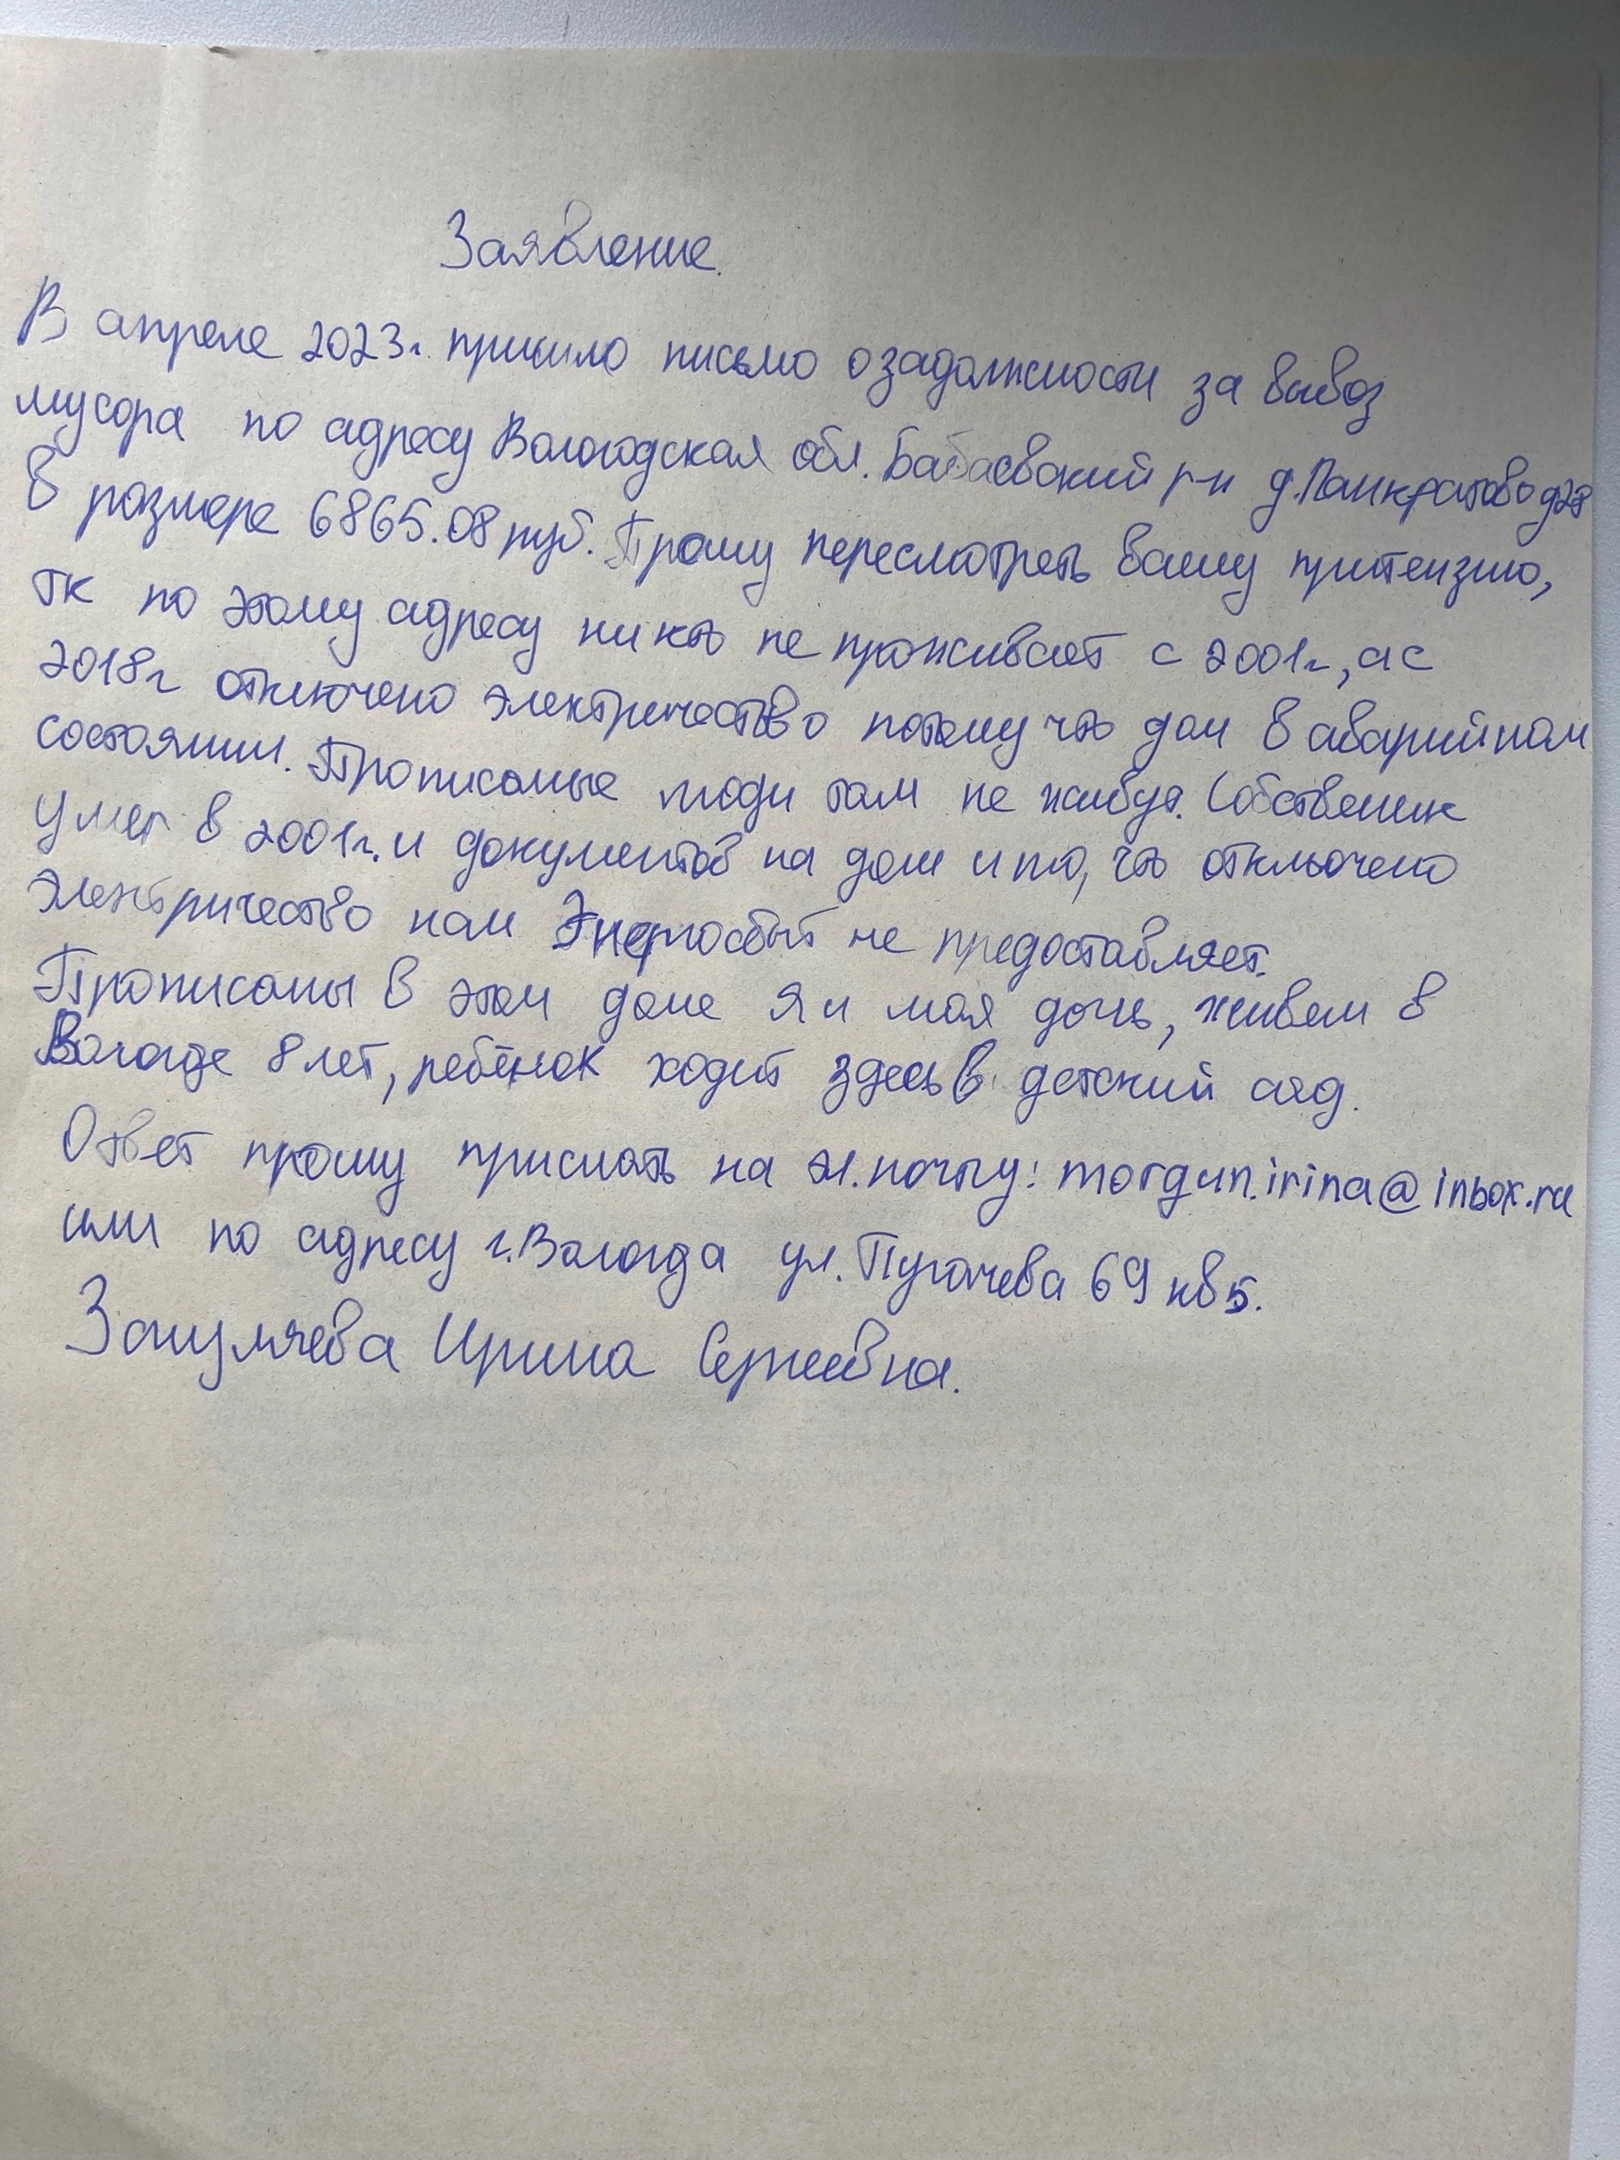 Заявление.
В апреле 2023г. пришло письмо о задолжности за вывоз
мусора по адресу Вологодская обл. Бабаевский р-н д.Панкратово д28
в размере 6865.08 руб. Прошу пересмотреть вашу притензию,
тк по этому адресу никто не проживает с 2001г, а с
2018г отключено электричество потому что дом в аварийном
состоянии. Прописаные люди там не живут. Собственик
умер в 2001г. и документов на дом и то, что отключено
электричество нам Энергосбыт не предоставляет.
Прописаны в этом доме я и моя дочь, живем в
Вологде 8 лет, ребёнок ходит здесь в детский сад.
Ответ прошу прислать на эл.почту: morgun.irina@inbox.ru
или по адресу г.Вологда ул.Пугачева 69 кв 5.
Ирина Сергеевна.